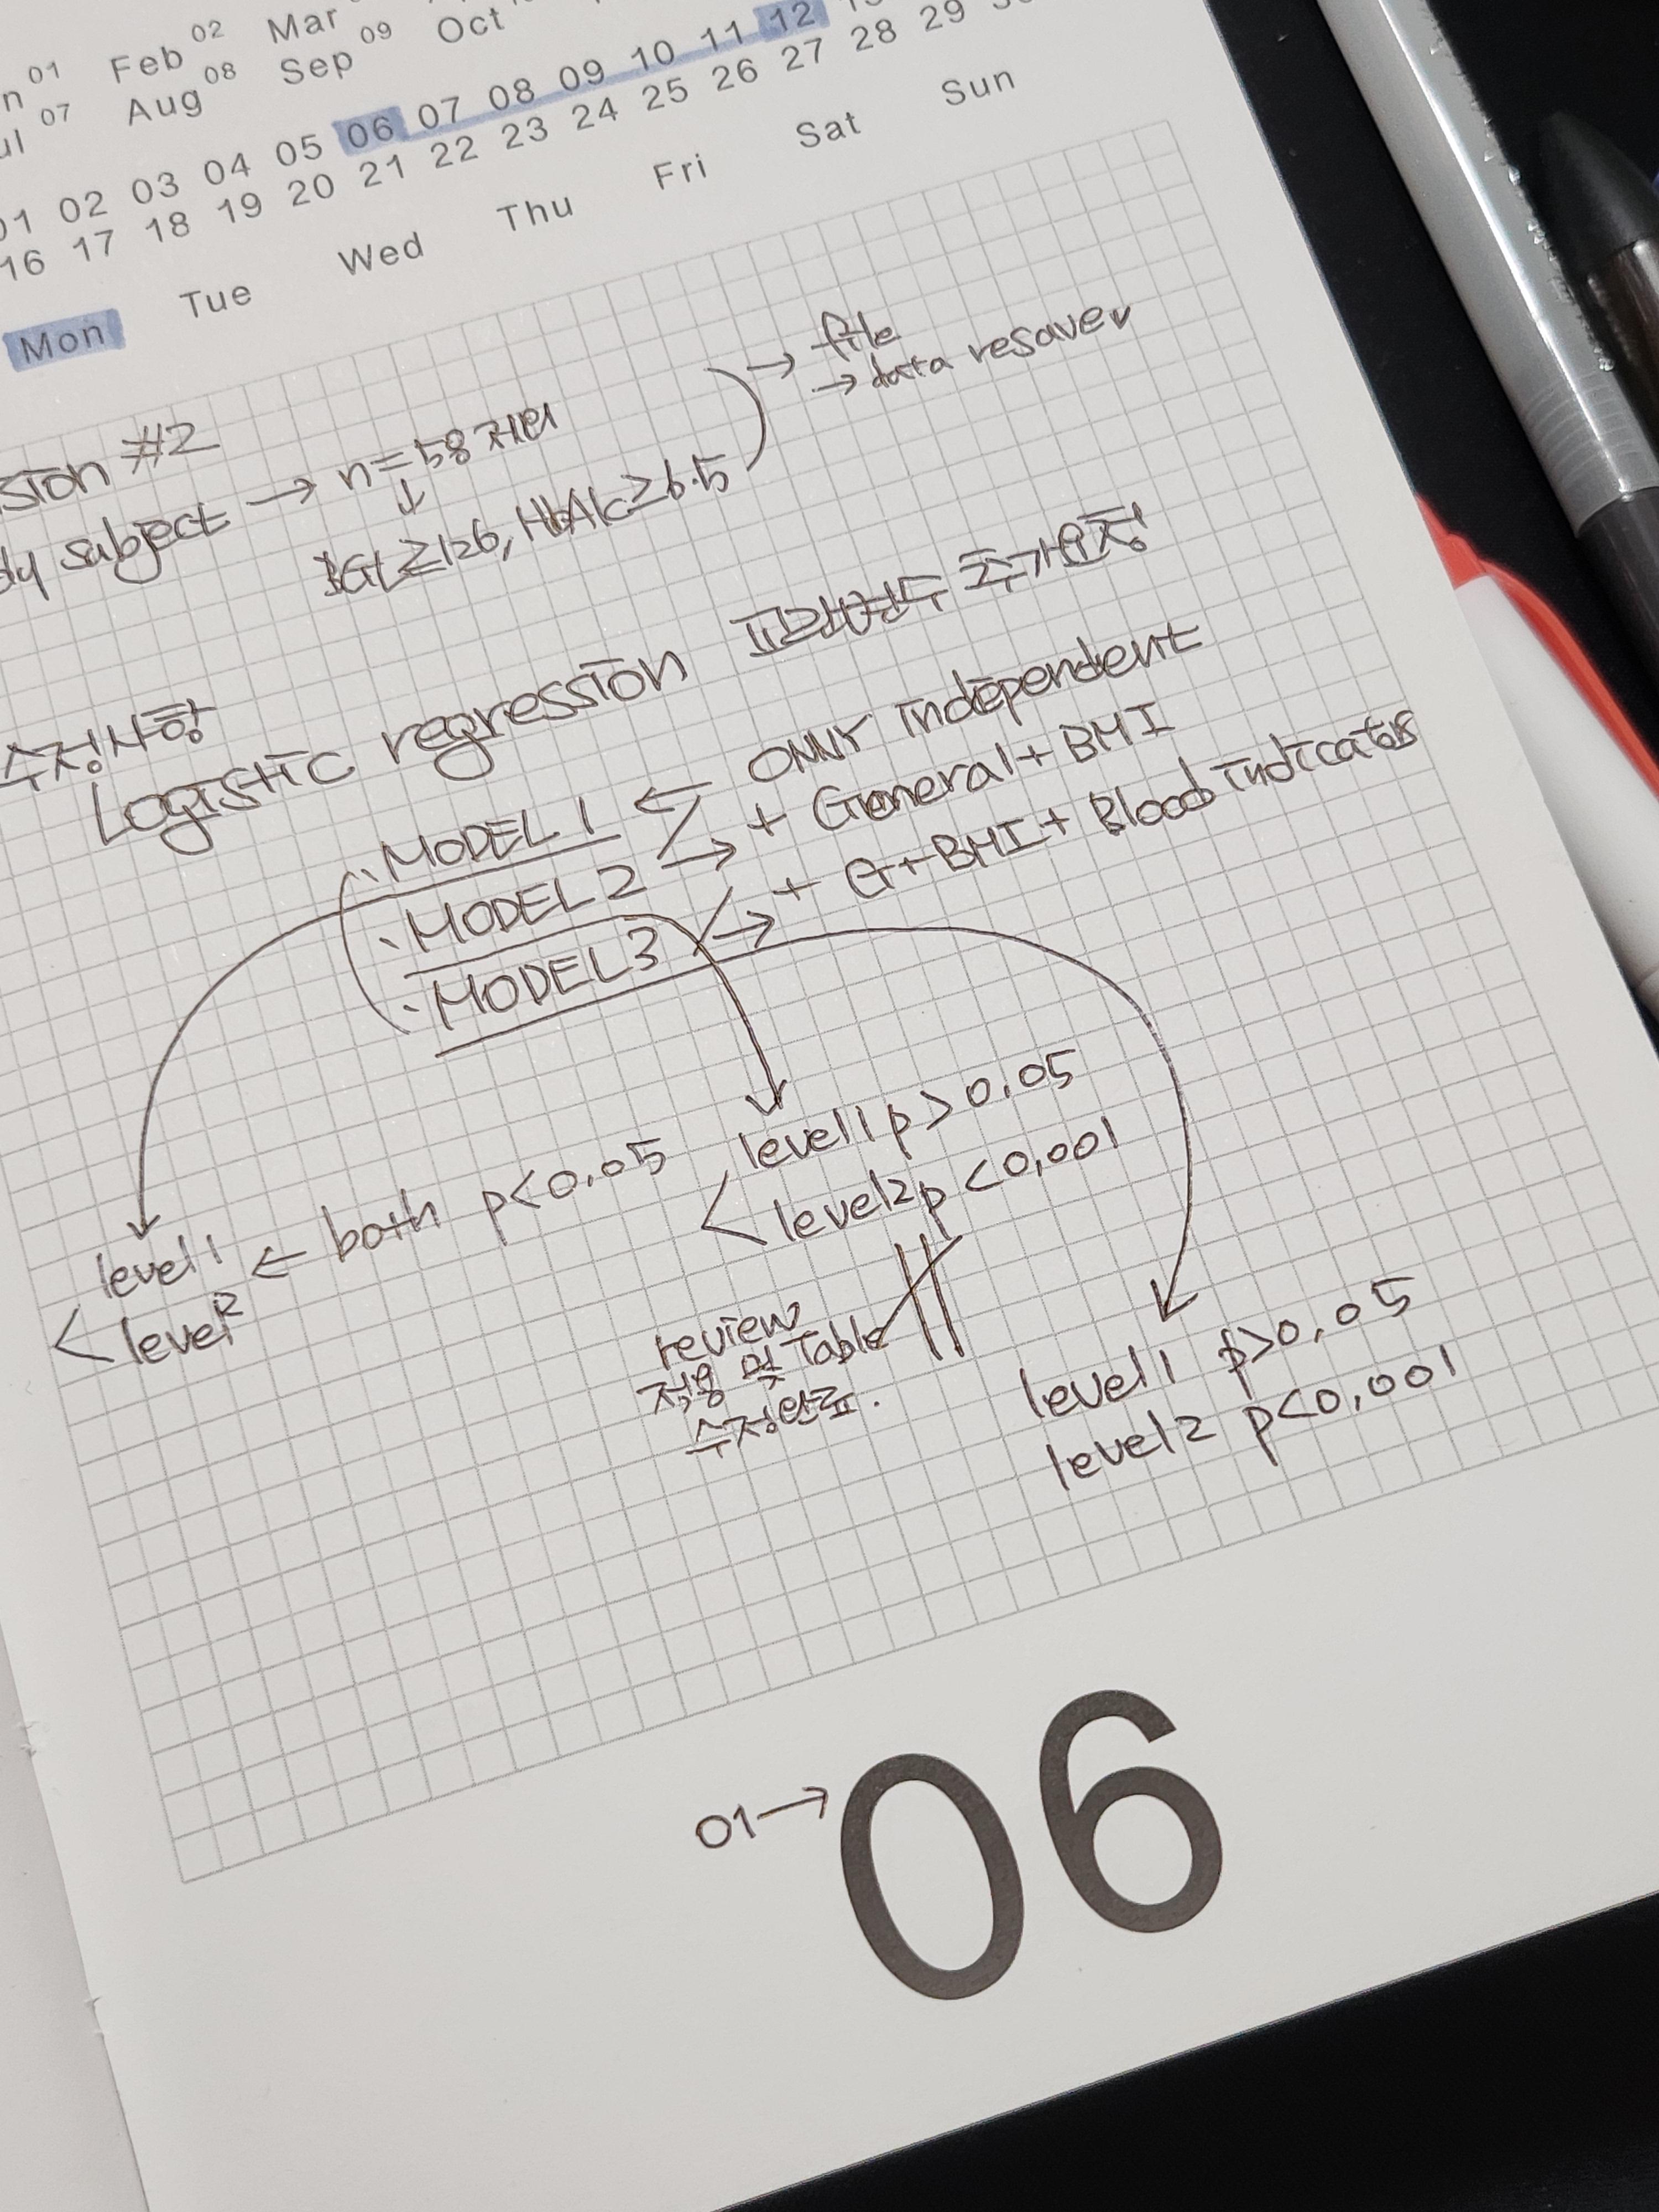 01 Feb 02 Mar
07 Aug 08 Sep 09 Oct
01 02 03 04 05 06 07 08 09 10 11 12
16 17 18 19 20 21 22 23 24 25 26 27 28 29
Mon Tue Wed Thu Fri Sat Sun
sion #2
dy subject → n=58 제외
↓
≥126, HbA1c≥6.5
→ file
→ data resave✓
수정사항
Logistic regression 교란변수 추가요청
· MODEL 1 ← ONLY independent
· MODEL 2 → + General + BMI
· MODEL 3 → + G+BMI + Blood indicators
level 1 ← both p<0.05
< level 2
level 1 p>0.05
< level 2 p<0.001
review
적용 및 Table
수정완료.
level 1 p>0.05
level 2 p<0.001
01→
06